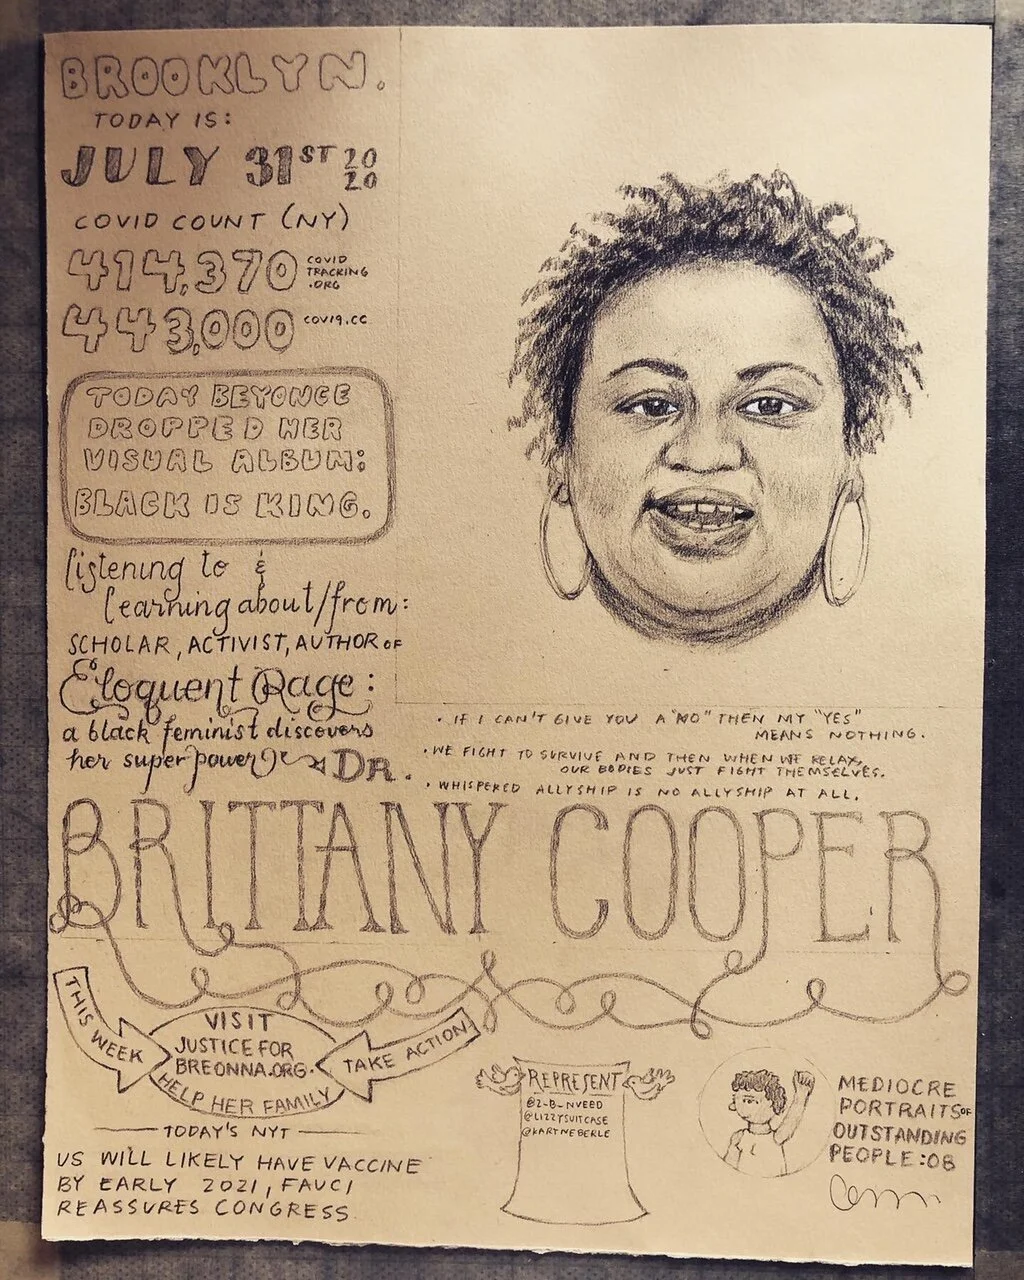 BROOKLYN.
TODAY IS:
JULY 31ST 2020
COVID COUNT (NY)
414,370 COVID TRACKING .ORG
443,000 COV19.CC
TODAY BEYONCE
DROPPED HER
VISUAL ALBUM:
BLACK IS KING.
listening to &
learning about/from:
SCHOLAR, ACTIVIST, AUTHOR OF
Eloquent Rage:
a black feminist discovers
her superpower
DR.
• IF I CAN'T GIVE YOU A "NO" THEN MY "YES"
MEANS NOTHING.
• WE FIGHT TO SURVIVE AND THEN WHEN WE RELAX,
OUR BODIES JUST FIGHT THEMSELVES.
• WHISPERED ALLYSHIP IS NO ALLYSHIP AT ALL.
BRITTANY COOPER
THIS WEEK
VISIT
JUSTICE FOR
BREONNA.ORG.
HELP HER FAMILY
TAKE ACTION
TODAY'S NYT
US WILL LIKELY HAVE VACCINE
BY EARLY 2021, FAUCI
REASSURES CONGRESS
REPRESENT
@LIZZYSUITCASE
MEDIOCRE
PORTRAITS OF
OUTSTANDING
PEOPLE:08